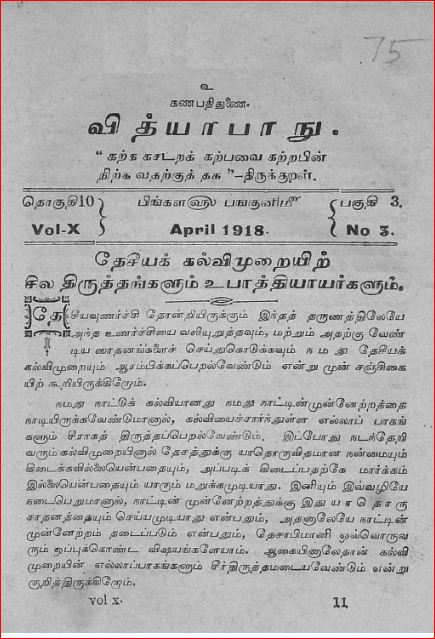 75
உ
கணபதிதுணை.
வித்யாபாநு.
“கற்க கசடறக் கற்பவை கற்றபின்
நிற்க வதற்குத் தக”-திருக்குறள்.
தொகுதி10 பிங்களளு பங்குனிமீ பகுதி 3.
Vol-X April 1918. No 3.
தேசியக் கல்விமுறையிற்
சில திருத்தங்களும் உபாத்தியாயர்களும்.
தேசியவுணர்ச்சி தோன்றியிருக்கும் இந்தத் தருணத்திலேயே
அந்த உணர்ச்சியை வலியுறுத்தவும், மற்றும் அதற்கு வேண்
டிய ஸாதனங்களைச் செய்துகொடுக்கவும் நமது தேசியக்
கல்விமுறையும் ஆரம்பிக்கப்பெறல்வேண்டும் என்று முன் சஞ்சிகை
யிற் கூறியிருக்கிறோம்.
நமது நாட்டுக் கல்வியானது நமது நாட்டின்முன்னேற்றத்தை
நாடியிருக்கவேண்டுமானால், கல்வியைச்சார்ந்துள்ள எல்லாப் பாகங்
களும் சீராகத் திருத்தப்பெறல்வேண்டும். இப்போது நடந்தேறி
வரும் கல்விமுறையினால் தேசத்துக்கு யாதொருவிதமான நன்மையும்
கிடைக்கவில்லையென்பதையும், அப்படிக் கிடைப்பதற்கே மார்க்கம்
இல்லையென்பதையும் யாரும் மறுக்கமுடியாது. இனியும் இவ்வழியே
நடைபெறுமானால், நாட்டின் முன்னேற்றத்துக்கு இது யாதொரு
சாதனத்தையும் செய்யமுடியாது என்பதும், அதனாலேயே நாட்டின்
முன்னேற்றம் தடைப்படும் என்பதும், தேசாபிமானி ஒவ்வொருவ
ரும் ஒப்புக்கொண்ட விஷயங்களேயாம். ஆகையினாலேதான் கல்வி
முறையின் எல்லாப்பாகங்களும் சீர்திருத்தமடையவேண்டும் என்று
குறித்திருக்கிறோம்.
vol x. 11